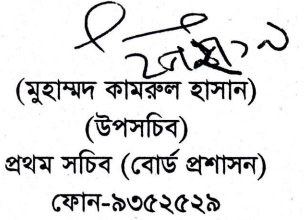 (মুহাম্মদ কামরুল হাসান)
(উপসচিব)
প্রথম সচিব (বোর্ড প্রশাসন)
ফোন-৯৩৫২৫২৯